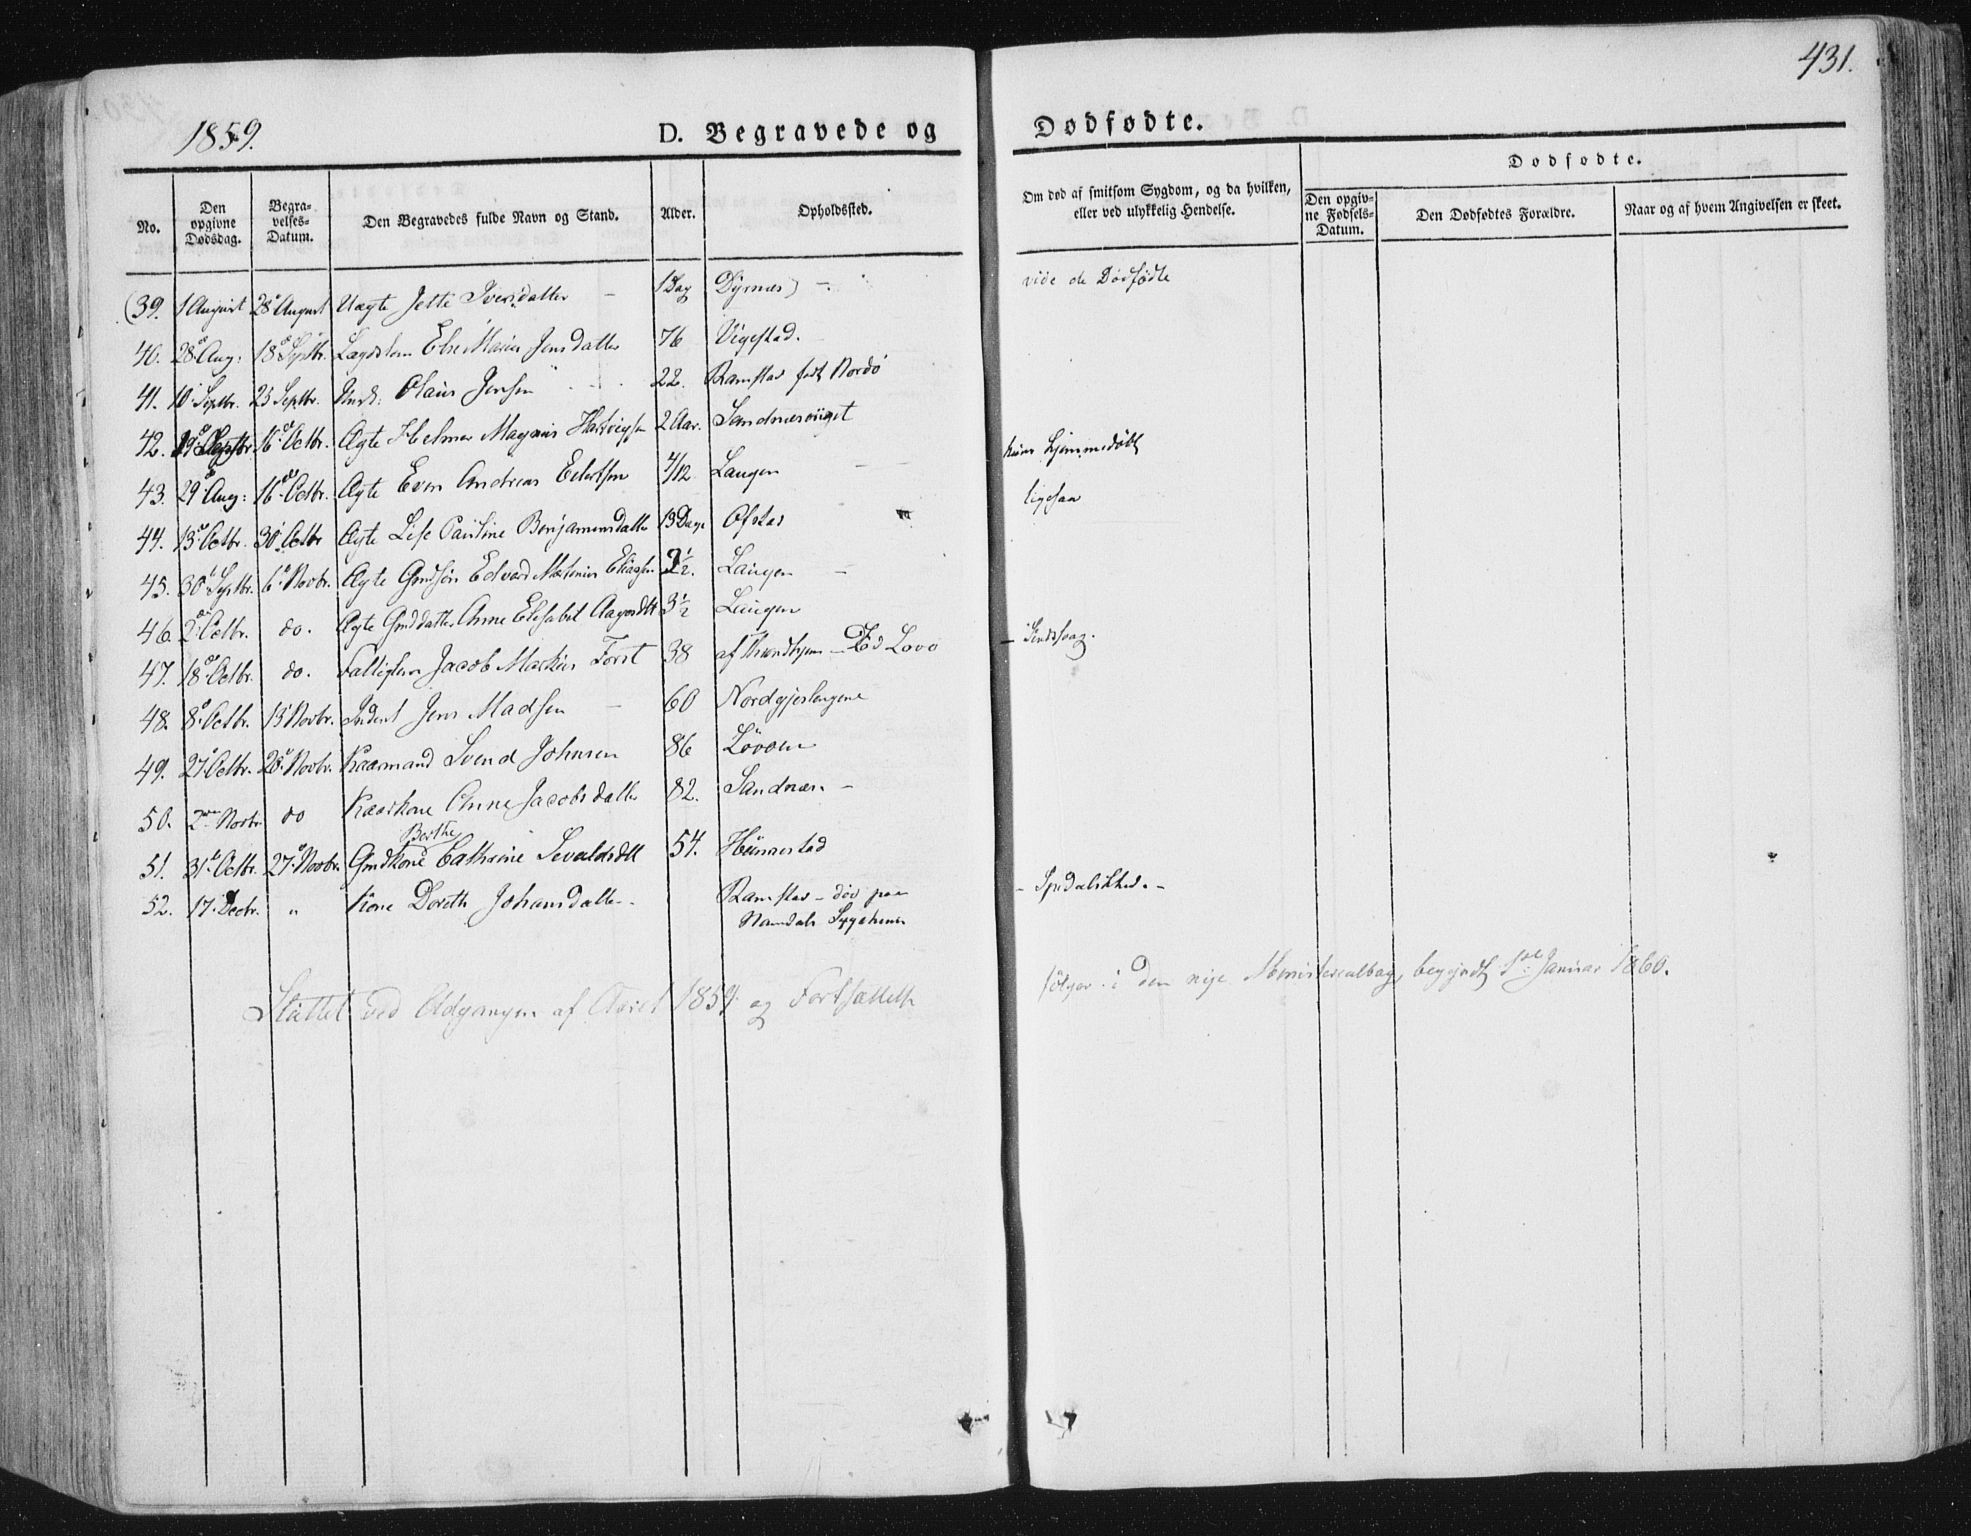 431.
1859.
D. Begravede og Dodfodte.
No.
Den opgivne Dodsdag.
Begravelses-Datum.
Den Begravedes fulde Navn og Stand.
Alder.
Opholdssted.
Om dod af smitsom Sygdom, og da hvilken, eller ved ulykkelig Hendelse.
Dodfodte.
Den opgivne Fodsels-Datum.
Den Dodfodtes Forældre.
Naar og af hvem Angivelsen er skeet.
(39. 1 August 28 August Uægte Jette Iversdatter - 1 Dag Dyrnæs) - vide de Dödfödte
40. 28 Aug: 18 Septbr. Lægdslem Else Maria Jensdatter 76 Vigestad.
41. 10 Septbr. 25 Septbr. Olaus Jensen 22. Ramstad født Nordö
42. 19 Septbr 16 Octbr. Ægte Helmer Magnus Hartvigsen 2 Aar. Sandnæs hjemmedöbt
43. 29 Aug: 16 Octbr. Ægte Even Andreas Edertsen 4/12 Laugen - ligesaa
44. 13 Octbr. 30 Octbr Ægte Lise Pauline Benjaminsdatter 13 Dage Ofstad
45. 30 Septbr. 6 Novbr. Ægte Gmdsön Edvard Eliassen 2½. Laugen -
46. 2 Octbr. do. Ægte Gmddatter Anne Elisabet 3½ Laugen
47. 18 Octbr. do. Fattiglem Jacob Forst 38 af Trondhjem - Lovö -
48. 8 Octbr. 13 Novbr. Inderst Jens Madsen - 60 Nordgjeslengene
49. 27 Octbr. 20 Novbr. Kaarmand Svend Johnsen 86 Lövöen
50. 2den Novbr do Kaarkone Anne Jacobsdatter 82. Sandnæs. -
Berthe
51. 31 Octbr. 27 Novbr. Gmdkone Cathrine Sevaldsdtt 54. Hunnestad
52. 17 Decbr. " Kone Doreth Johansdatter. Ramstad - död paa - Spedalskhed. -
Namdals Sygehuus
Sluttet ved Udgangen af Aaret 1859 og Fortsættelse
fölger i den nye Ministerialbog, begyndt 1ste Januar 1860.